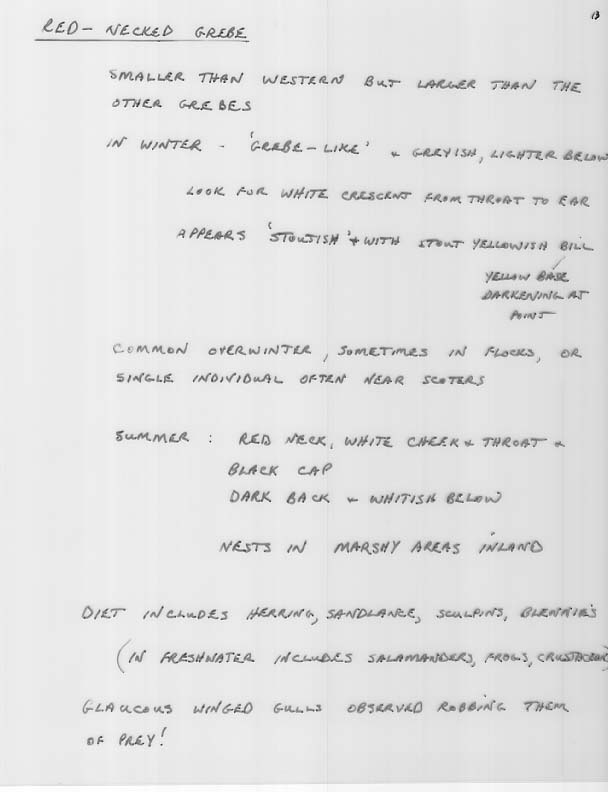 13
RED-NECKED GREBE
SMALLER THAN WESTERN BUT LARGER THAN THE
OTHER GREBES
IN WINTER - 'GREBE-LIKE' & GREYISH, LIGHTER BELOW
LOOK FOR WHITE CRESCENT FROM THROAT TO EAR
APPEARS 'STOUTISH' & WITH STOUT YELLOWISH BILL
YELLOW BASE
DARKENING AT
POINT
COMMON OVERWINTER, SOMETIMES IN FLOCKS, OR
SINGLE INDIVIDUAL OFTEN NEAR SCOTERS
SUMMER : RED NECK, WHITE CHEEK & THROAT &
BLACK CAP
DARK BACK & WHITISH BELOW
NESTS IN MARSHY AREAS INLAND
DIET INCLUDES HERRING, SANDLANCE, SCULPINS, BLENNIES
(IN FRESHWATER INCLUDES SALAMANDERS, FROGS,
GLAUCOUS WINGED GULLS OBSERVED ROBBING THEM
OF PREY!